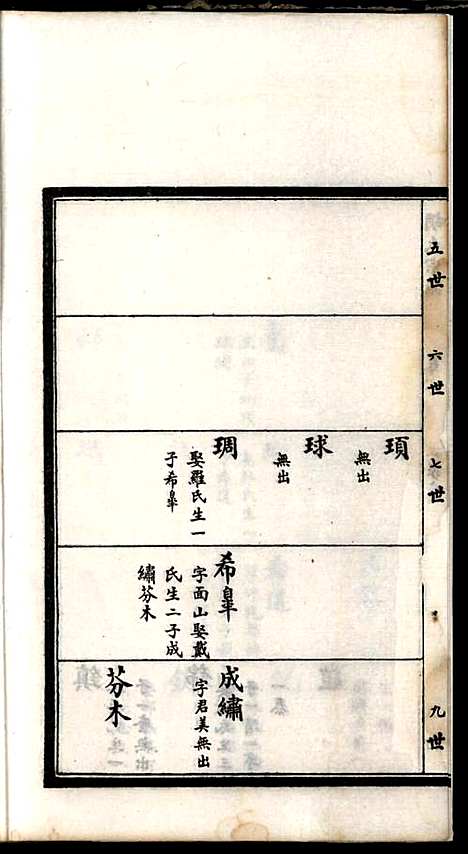 五世
六世
七世
頊
無出
球
無出
琱
娶羅氏生一
子希臯
希臯
字面山娶戴
氏生二子成
繡芬木
九世
成繡
字君美無出
芬木